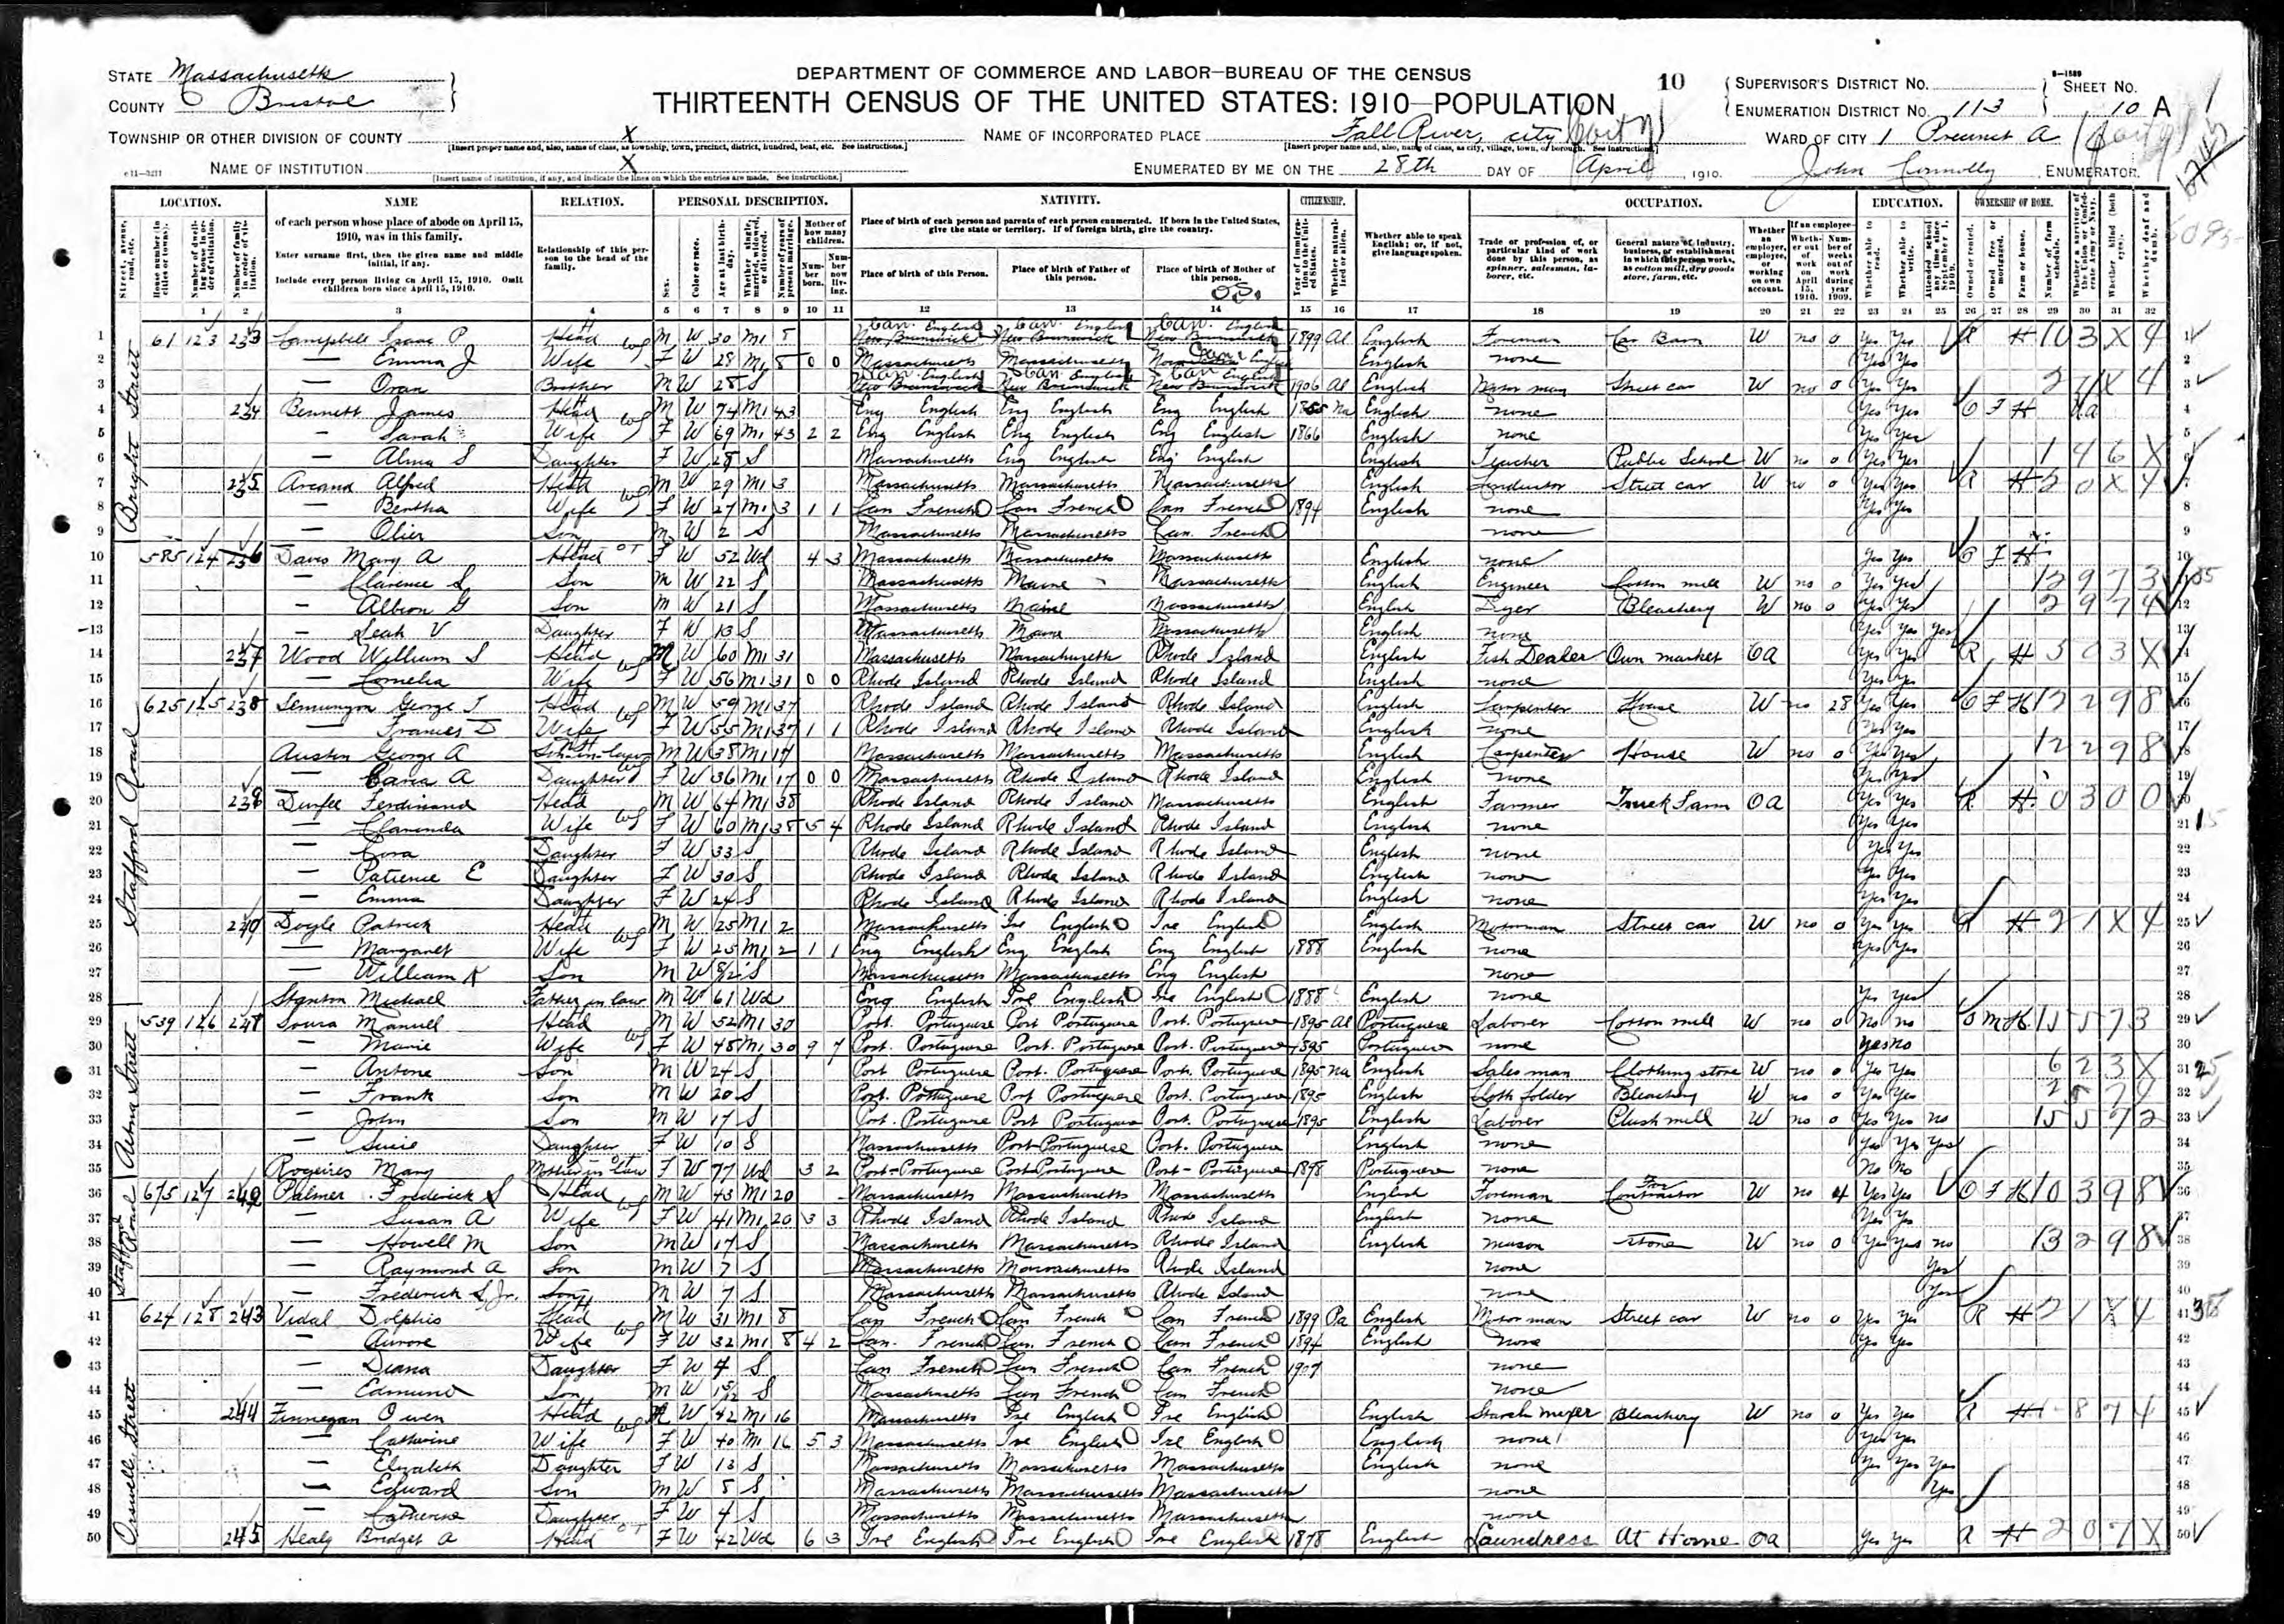 DEPARTMENT OF COMMERCE AND LABOR—BUREAU OF THE CENSUS
THIRTEENTH CENSUS OF THE UNITED STATES: 1910—POPULATION
STATE Massachusetts
COUNTY Bristol
TOWNSHIP OR OTHER DIVISION OF COUNTY X
NAME OF INSTITUTION X
NAME OF INCORPORATED PLACE Fall River, city
ENUMERATED BY ME ON THE 28th DAY OF April, 1910.
10
SUPERVISOR'S DISTRICT NO.
ENUMERATION DISTRICT NO. 113
SHEET NO. 10 A
WARD OF CITY 1 Precinct A
John Connolly, ENUMERATOR.
LOCATION. NAME RELATION. PERSONAL DESCRIPTION. NATIVITY. CITIZENSHIP. OCCUPATION. EDUCATION. OWNERSHIP OF HOME.
of each person whose place of abode on April 15, 1910, was in this family.
Enter surname first, then the given name and middle initial, if any.
Include every person living on April 15, 1910. Omit children born since April 15, 1910.
Relationship of this person to the head of the family.
Place of birth of each person and parents of each person enumerated. If born in the United States, give the state or territory. If of foreign birth, give the country.
Place of birth of this Person. Place of birth of Father of this person. Place of birth of Mother of this person.
Whether able to speak English; or, if not, give language spoken.
Trade or profession of, or particular kind of work done by this person, as spinner, salesman, laborer, etc.
General nature of industry, business, or establishment in which this person works, as cotton mill, dry goods store, farm, etc.
Bright Street
1 61 123 233 Campbell Isaac P Head M W 30 M1 8 Can. English Can. English Can. English 1899 Al English Foreman Car Barn W no 0 Yes Yes R H
2 — Emma J Wife F W 28 M1 8 0 0 Massachusetts Massachusetts English none Yes Yes
3 — Oran Brother M W 28 S Can. English Can. English Can English 1906 Al English Motor man Street car W no 0 Yes Yes
4 234 Bennett James Head M W 74 M1 43 Eng English Eng English Eng English Na English none Yes Yes O F H
5 — Sarah Wife F W 69 M1 43 2 2 Eng English Eng English Eng English 1866 English none Yes Yes
6 — Alma S Daughter F W 28 S Massachusetts Eng English Eng English English Teacher Public School W no 0 Yes Yes
7 235 Arcand Alfred Head M W 29 M1 3 Massachusetts Massachusetts Massachusetts English Conductor Street car W no 0 Yes Yes R H
8 — Bertha Wife F W 27 M1 3 1 1 Can French Can French Can French 1894 English none Yes Yes
9 — Olier Son M W 2 S Massachusetts Massachusetts Can. French none
10 585 124 236 Davis Mary A Head F W 52 Wd 4 3 Massachusetts Massachusetts Massachusetts English none Yes Yes O F H
11 — Clarence L Son M W 22 S Massachusetts Maine Massachusetts English Engineer Cotton mill W no 0 Yes Yes
12 — Albion G Son M W 21 S Massachusetts Maine Massachusetts English Dyer Bleachery W no 0 Yes Yes
13 — Leah V Daughter F W 13 S Massachusetts Maine Massachusetts English none Yes Yes Yes
Stafford Road
14 237 Wood William S Head M W 60 M1 31 Massachusetts Massachusetts Rhode Island English Fish Dealer Own market OA Yes Yes R H
15 — Cornelia Wife F W 56 M1 31 0 0 Rhode Island Rhode Island Rhode Island English none Yes Yes
16 625 125 238 George T Head M W 59 M1 37 Rhode Island Rhode Island Rhode Island English Carpenter House W no 28 Yes Yes O F H
17 — Frances D Wife F W 55 M1 37 1 1 Rhode Island Rhode Island Rhode Island English none Yes Yes
18 Austin George A Son-in-law M W 38 M1 17 Massachusetts Massachusetts Massachusetts English Carpenter House W no 0 Yes Yes
19 — A Daughter F W 36 M1 17 0 0 Massachusetts Rhode Island Rhode Island English none Yes Yes
20 239 Durfee Ferdinand Head M W 64 M1 38 Rhode Island Rhode Island Massachusetts English Farmer Truck Farm OA Yes Yes R H
21 — Clarinda Wife F W 60 M1 38 5 4 Rhode Island Rhode Island Rhode Island English none Yes Yes
22 — Cora Daughter F W 33 S Rhode Island Rhode Island Rhode Island English none Yes Yes
23 — Patience E Daughter F W 30 S Rhode Island Rhode Island Rhode Island English none Yes Yes
24 — Emma Daughter F W 24 S Rhode Island Rhode Island Rhode Island English none Yes Yes
25 240 Doyle Patrick Head M W 25 M1 2 Massachusetts Ire English Ire English English Motorman Street car W no 0 Yes Yes R H
26 — Margaret Wife F W 25 M1 2 1 1 Eng English Eng English Eng English 1888 English none Yes Yes
27 — William K Son M W 8/12 S Massachusetts Massachusetts Eng English none
28 Stanton Michael Father in law M W 61 Wd Eng English Ire English Ire English 1888 English none Yes Yes
Aetna Street
29 539 126 241 Sousa Manuel Head M W 52 M1 30 Port. Portuguese Port Portuguese Port. Portuguese 1895 Al Portuguese Laborer Cotton mill W no 0 No no O M H
30 — Marie Wife F W 48 M1 30 9 7 Port. Portuguese Port. Portuguese Port. Portuguese 1895 Portuguese none yes no
31 — Antone Son M W 24 S Port Portuguese Port. Portuguese Port. Portuguese 1895 Na English Sales man Clothing store W no 0 Yes Yes
32 — Frank Son M W 20 S Port. Portuguese Port Portuguese Port. Portuguese 1895 English Cloth folder Bleachery W no 0 Yes Yes
33 — John Son M W 17 S Port. Portuguese Port Portuguese Port. Portuguese 1895 English Laborer mill W no 0 Yes Yes no
34 — Daughter F W 10 S Massachusetts Port Portuguese Port. Portuguese English none Yes Yes Yes
35 Mary Mother in law F W 77 Wd 3 2 Port-Portuguese Port Portuguese Port-Portuguese 1898 Portuguese none No No
Stafford Road
36 675 127 242 Palmer Frederick S Head M W 43 M1 20 Massachusetts Massachusetts Massachusetts English Foreman For Contractor W no 4 Yes Yes O F H
37 — Susan A Wife F W 41 M1 20 3 3 Rhode Island Rhode Island Rhode Island English none Yes Yes
38 — Howell M Son M W 17 S Massachusetts Massachusetts Rhode Island English mason stone W no 0 Yes Yes no
39 — Raymond A Son M W 7 S Massachusetts Massachusetts Rhode Island none Yes
40 — Frederick S, Jr. Son M W 7 S Massachusetts Massachusetts Rhode Island none Yes
Orswell Street
41 624 128 243 Vidal Dolphis Head M W 31 M1 8 Can French Can French Can French 1899 Pa English Motor man Street car W no 0 Yes Yes R H
42 — Aurore Wife F W 32 M1 8 4 2 Can. French Can. French Can French 1894 English none Yes Yes
43 — Diana Daughter F W 4 S Can French Can French Can French 1907 none
44 — Edmund Son M W S Massachusetts Can French Can French none
45 244 Finnegan Owen Head M W 42 M1 16 Massachusetts Ire English Ire English English Starch Bleachery W no 0 Yes Yes R H
46 — Catherine Wife F W 40 M1 16 5 3 Massachusetts Ire English Ire English English none Yes Yes
47 — Elizabeth Daughter F W 13 S Massachusetts Massachusetts Massachusetts English none Yes Yes Yes
48 — Edward Son M W 8 S Massachusetts Massachusetts Massachusetts none Yes
49 — Catherine Daughter F W 4 S Massachusetts Massachusetts Massachusetts none
50 245 Healy Bridget A Head F W 42 Wd 6 3 Ire English Ire English Ire English 1878 English Laundress At Home OA Yes Yes R H